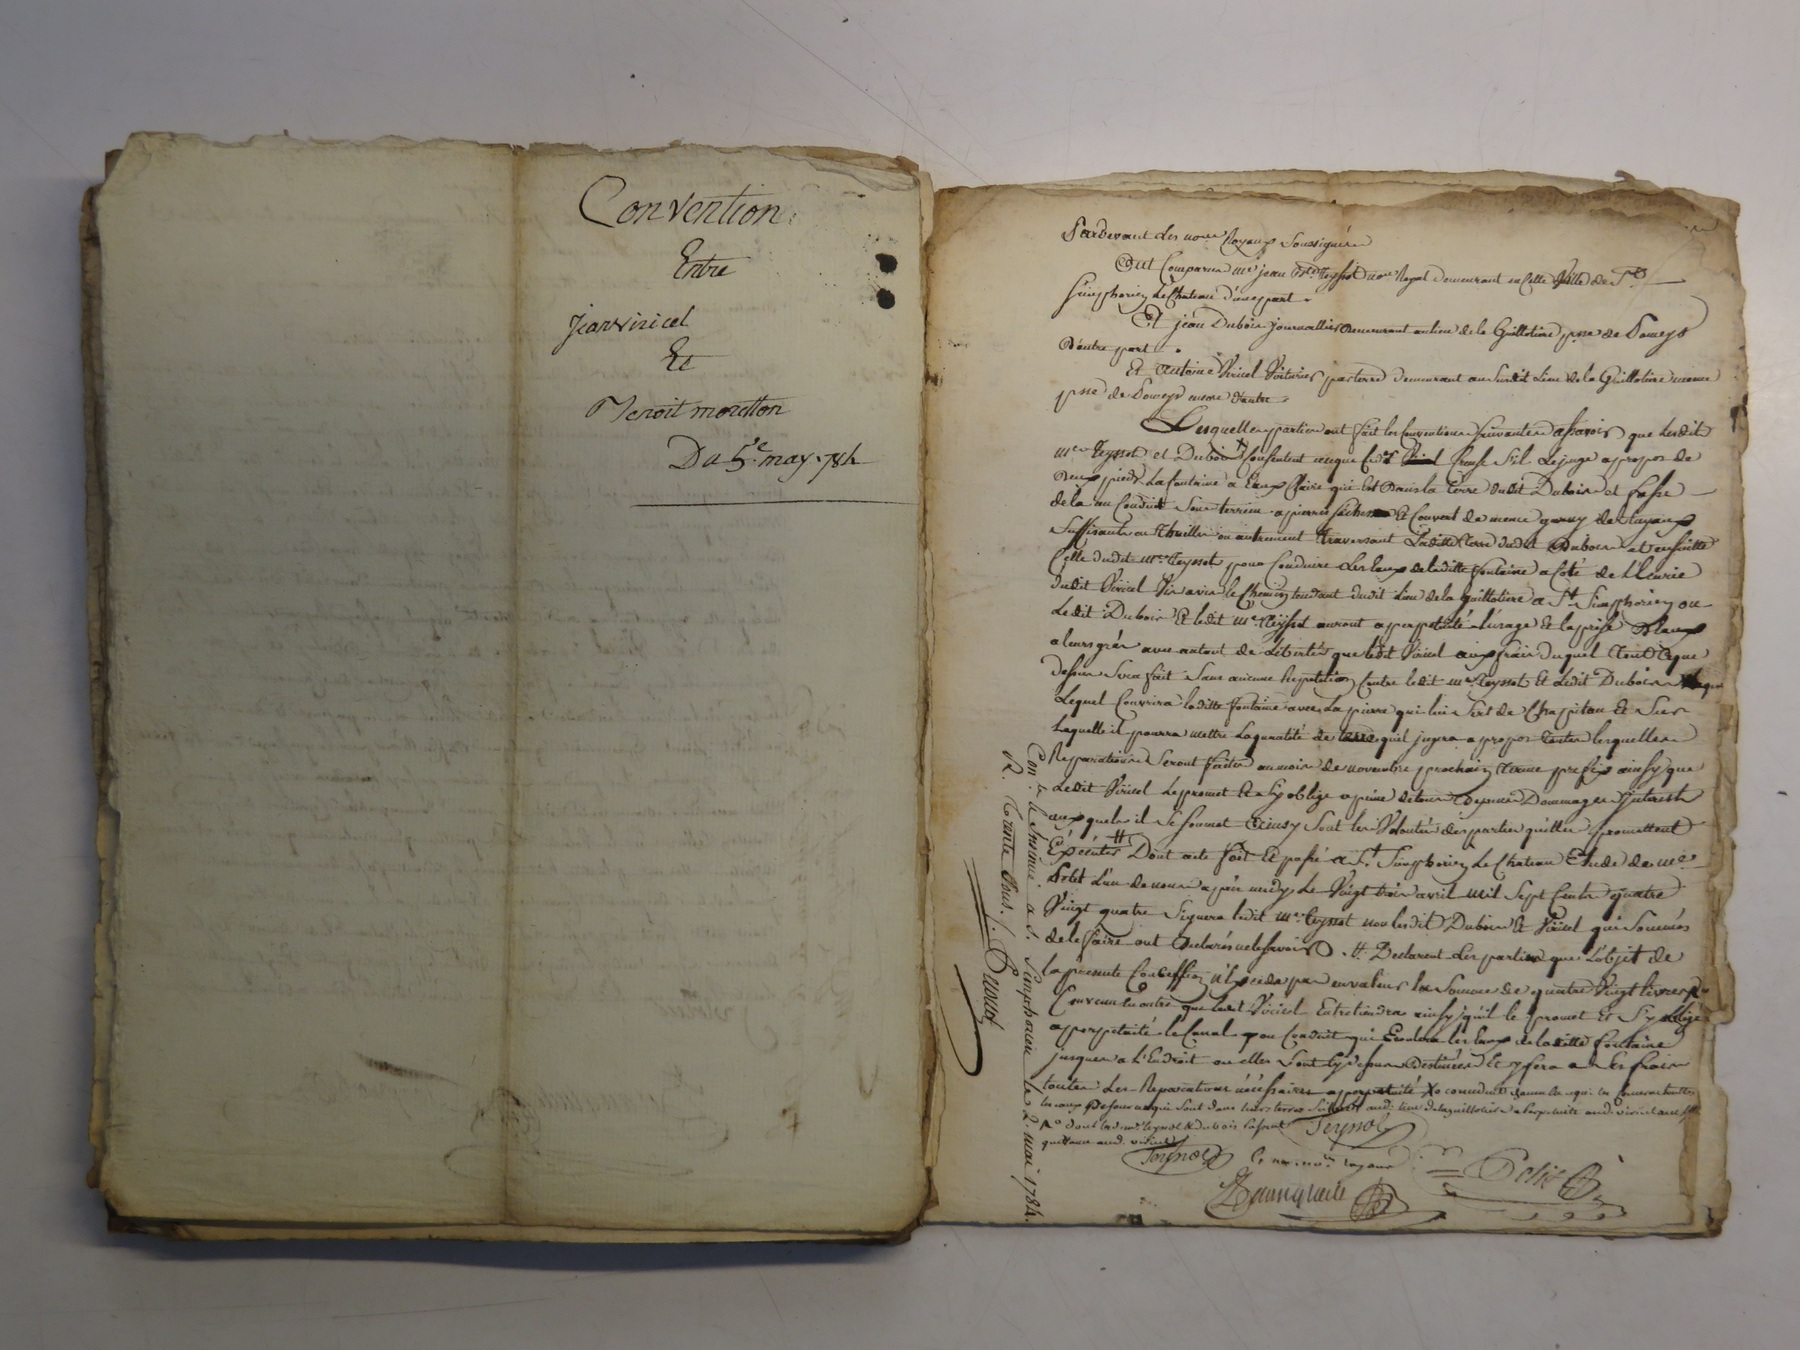 Convention
Entre
Jean viricel
Et
Benoit moretton
Du 5e. may. 784
Pardevant Les nores Royaux Soussignés
Est Comparu me jean Teyssot nore Royal demeurant en Cette Ville de St.
Simphorien Le Chateau d'une part.
Et jean Dubois journallier demeurant au lieu de la Guillotiere psse de Pomeys
D'autre part.
Et Antoine Viricel Voiturier par terre demeurant au Susdit Lieu de la Guillotiere meme
psse de Pomeys encore d'autre.
Lesquelles parties ont fait les Conventions Suivantes a Savoir que Lesdits
mes Teyssot et Dubois Consentent a ce que Creuse S'il Le juge a propos de
deux pieds La fontaine a Eaux Claire qui Est Dans la terre dudit Dubois et fasse
de la un Conduit Souterrein a pierres seches Et Couvert de meme garny de tuyaux
Suffisants ou Thuilles ou autrement traversant Laditte terre dudit Dubois et ensuitte
Celle dudit me Teyssot pour Conduire Les Eaux de laditte fontaine a Coté de L'Ecurie
dudit Viricel Vis avis le Chemin tendant dudit Lieu de la guillotiere a St. Simphorien ou
Ledit Dubois Et ledit me Teyssot auront a perpetuité l'usage Et la prise D'Eaux
a leurs grés avec autant de Libertés que ledit Viricel aux frais duquel tout Ce que
dessus Sera fait Sans aucune Repetition Contre ledit me Teyssot Et Ledit Dubois
Lequel Couvrira laditte fontaine avec La pierre qui lui Sert de Chapitau Et Sur
Laquelle il pourra mettre La quantité de terre quil jugera a propos toutes lesquelles
Reparations Seront faites au mois de novembre prochain terme prefix ainsy que
Ledit Viricel Le promet Et S'y oblige a peine de tous Depens Dommages Interests
aux quels il Se Soumet Ainsy Sont les Volontés des parties qu'elles promettent
Executer # Dont acte fait Et passé a St. Simphorien Le Chateau Etude de me
L'un de nous apres midy Le Vingt trois avril mil Sept Cents quatre
Vingt quatre Signera ledit me Teyssot non lesdits Dubois Et Viricel qui Sommés
de le faire ont Declarés ne le Savoir. # Declarent Les parties que L'objet de
la presente Concession n'Excede pas en valeur la Somme de quatre Vingt livres
Convenu En outre que ledit Viricel Entretiendra ainsy qu'il le promet Et S'y oblige
a perpetuité le Canal ou Conduit qui Ecoulera les Eaux de laditte fontaine
jusques a l'Endroit ou elles Sont Cy dessus Destinées Et y fera a Ses frais
toutes Les Reparations necessaires a perpetuité
Teyssot
quittance aud. viricel
Teyssot
Con. lé Insinué a S. Simphorien le 2. mai 1784.
R. Trente Sous.